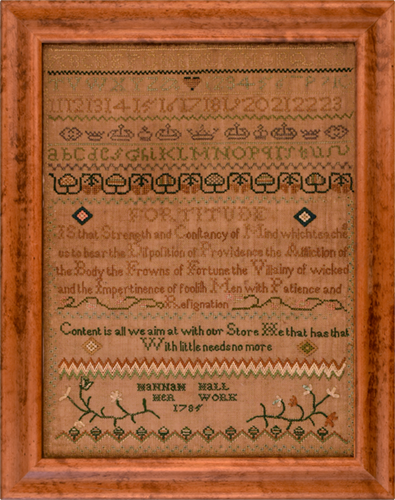 11 12 13 14 15 16 17 18 19 20 21 22 23
FORTITUDE
IS that Strength and Constancy of Mind which teache
us to bear the Disposition of Providence the Affliction of
the Body the Frowns of Fortune the Villainy of wicked
and the Impertinence of foolish Men with Patience and
Resignation
Content is all we aim at with our Store He that has that
With little needs no more
HANNAH HALL
HER WORK